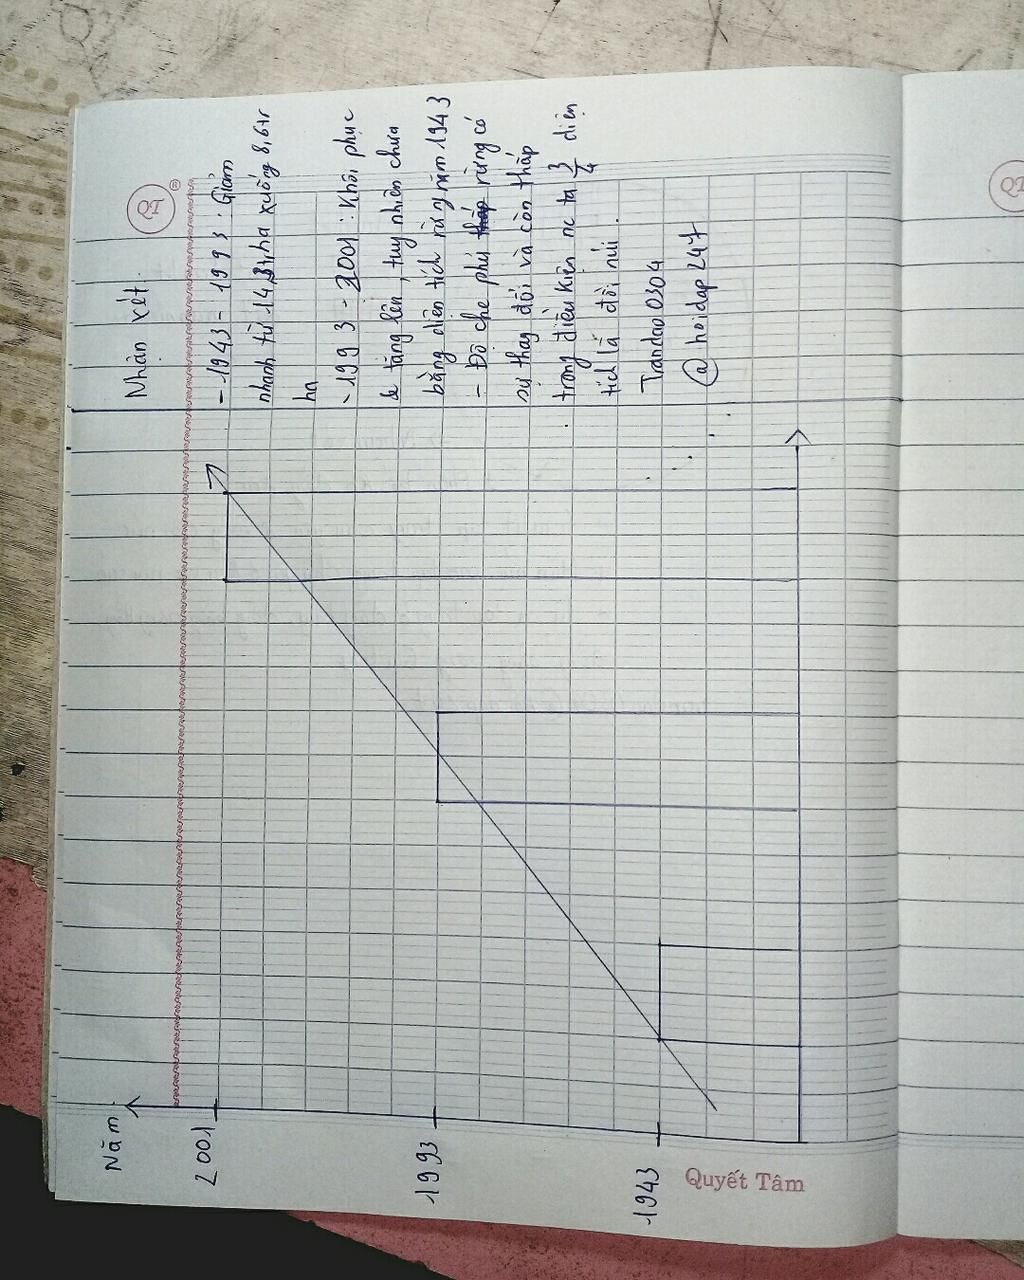 Năm
2001
1993
1943
Nhận xét.
- 1943 - 1993 : Giảm
nhanh từ 14,3tr,ha xuống 8,6tr
ha
- 1993 - 2001 : Khôi phục
tăng lên, tuy nhiên chưa
bằng diện tích rừng năm 1943
- Độ che phủ rừng có
sự thay đổi và còn thấp
trong điều kiện nc ta 3/4 diện
tích là đồi núi.
Trandao0304
@ hoidap247
QT
®
Quyết Tâm
QT